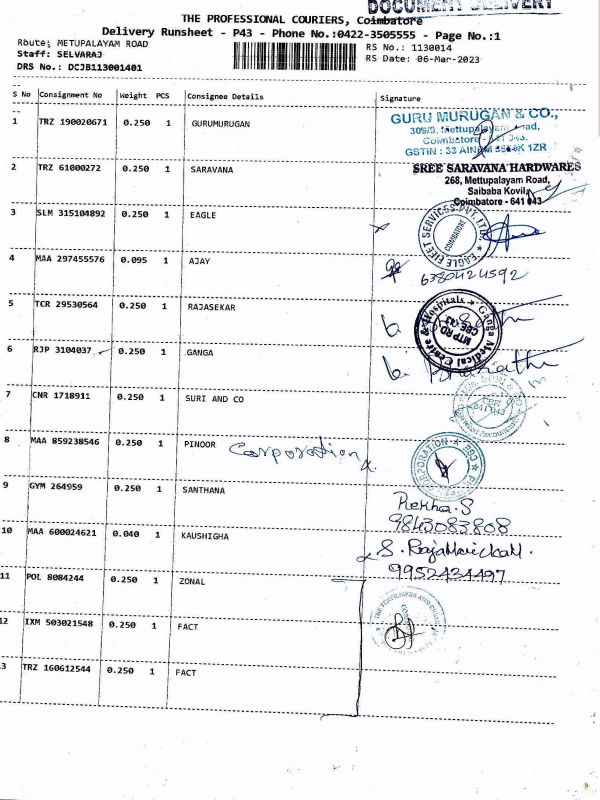 DOCUMENT DELIVERY
THE PROFESSIONAL COURIERS, Coimbatore
Delivery Runsheet - P43 - Phone No.:0422-3505555 - Page No.:1
Route: METUPALAYAM ROAD
RS No.: 1130014
Staff: SELVARAJ
RS Date: 06-Mar-2023
DRS No.: DCJB113001401
S No Consignment No Weight PCS Consignee Details Signature
1 TRZ 190020671 0.250 1 GURUMURUGAN
GURU MURUGAN & CO.,
309/9, Mettupalayam Road,
Coimbatore - 641 043.
GSTIN : 33
2 TRZ 61000272 0.250 1 SARAVANA
SREE SARAVANA HARDWARES
268, Mettupalayam Road,
Saibaba Kovil,
Coimbatore - 641 043
3 SLM 315104892 0.250 1 EAGLE
EAGLE FLEET SERVICES PVT. LTD
COIMBATORE
4 MAA 297455576 0.095 1 AJAY
6380424592
5 TCR 29530564 0.250 1 RAJASEKAR
Ganga Medical Centre & Hospitals
MTP RD
CBE-43
6 RJP 3104037 0.250 1 GANGA
7 CNR 1718911 0.250 1 SURI AND CO
8 MAA 859238546 0.250 1 PINOOR Corporation
CORPORATION
9 GYM 264959 0.250 1 SANTHANA
Rekha.S
9843083808
10 MAA 600024621 0.040 1 KAUSHIGHA
9952434497
11 POL 8084244 0.250 1 ZONAL
12 IXM 503021548 0.250 1 FACT
3 TRZ 160612544 0.250 1 FACT